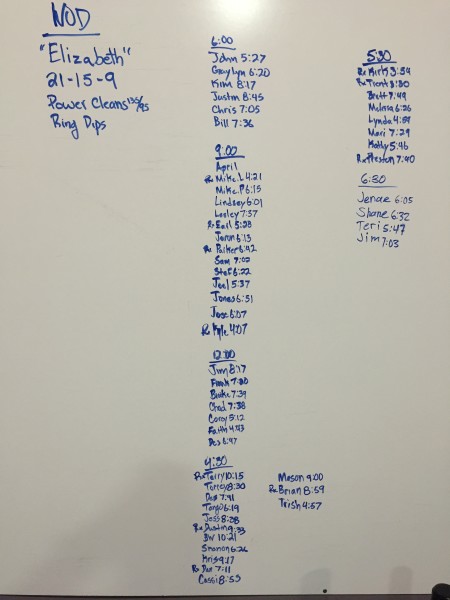 WOD
"Elizabeth"
21-15-9
Power Cleans 135/95
Ring Dips
6:00
John 5:27
Graylyn 6:20
Kim 8:17
Justin 8:45
Chris 7:05
Bill 7:36
9:00
April
Rx Mike.L 4:21
Mike.P 6:15
Lindsey 6:01
Lesley 7:57
Rx Emil 5:28
Jaron 6:13
Rx Parker 6:42
Sam 7:02
Stef 6:22
Joel 5:37
Jonas 6:51
Jose 6:07
Rx Kyle 4:07
12:00
Jim 8:17
Frank 7:20
Burke 7:39
Chad 7:38
Corey 5:12
Faith 4:43
Des 6:47
4:30
Rx Terry 10:15
Torrey 8:30
7:41
6:19
Jess 8:28
Rx Dustin 9:33
BW 10:21
Shannon 6:26
Kris 9:17
Rx Dan 7:11
Cassi 8:53
Mason 9:00
Rx Brian 8:59
Trish 4:57
5:30
Rx Kirk 3:54
Rx Trent 3:30
Brett 7:49
Melissa 6:26
Lynda 4:59
Mari 7:29
Kathy 5:46
Rx Preston 7:40
6:30
Jenae 6:05
Shane 6:32
Teri 5:47
Jim 7:03